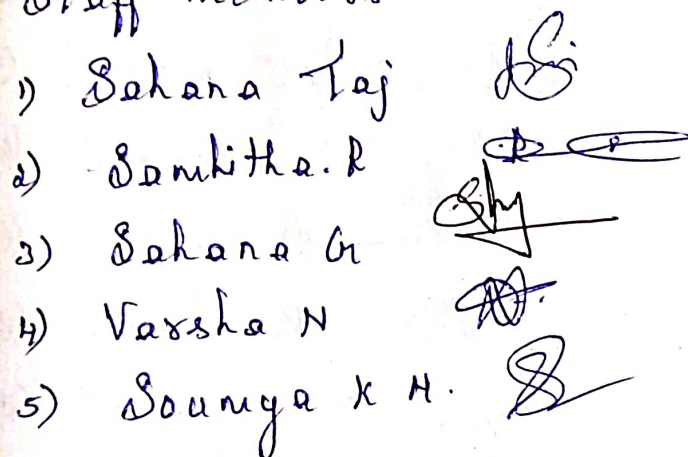 Staff
1) Sahana Taj
2) Samhitha. R
3) Sahana G
4) Varsha N
5) Soumya K M.